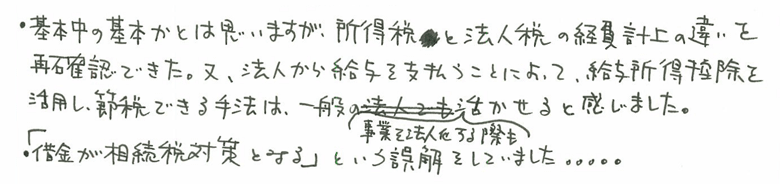 ・基本中の基本かとは思いますが、所得税と法人税の経費計上の違いを
再確認できた。又、法人から給与を支払うことによって、給与所得控除を
活用し、節税できる手法は、一般の法人でも活かせると感じました。
事業を法人化する際も
・「借金が相続税対策となる」という誤解をしていました.....